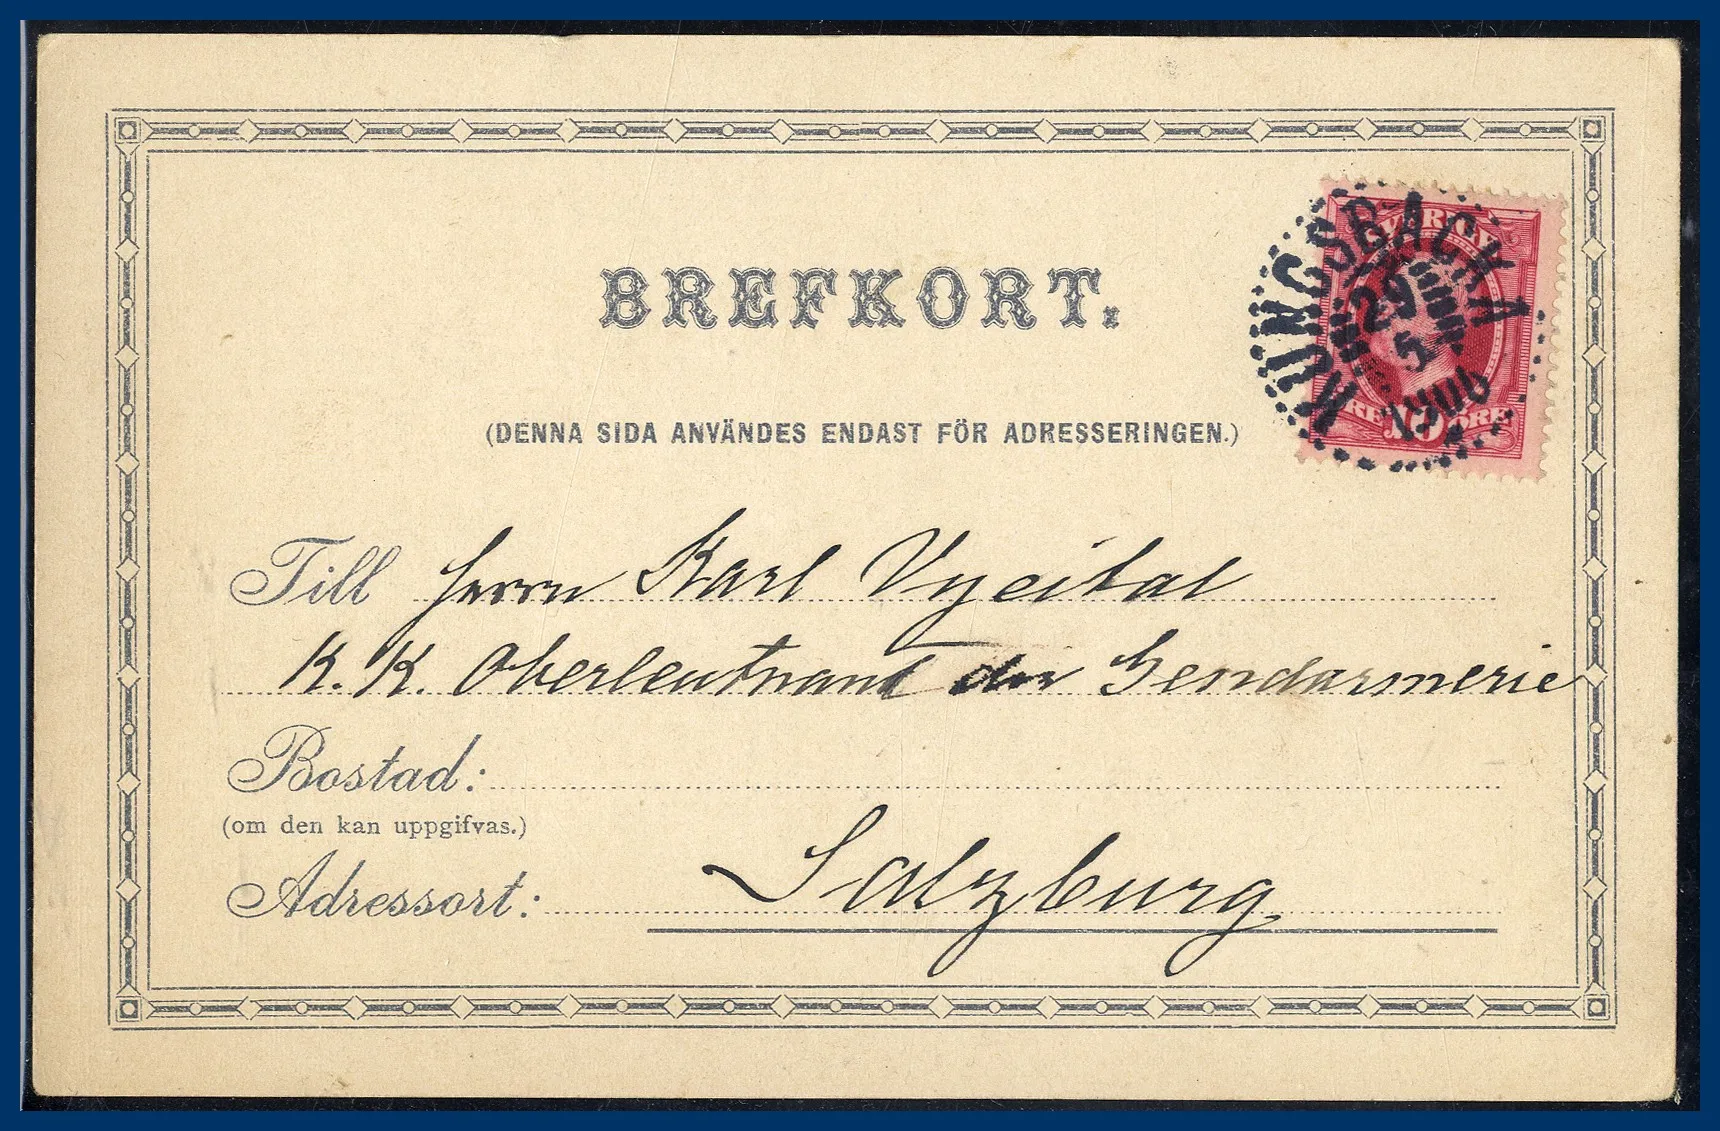 SVERIGE
KUNGSBACKA
29
5
1900
10 ÖRE
BREFKORT.
(DENNA SIDA ANVÄNDES ENDAST FÖR ADRESSERINGEN.)
Till Herrn Karl Vycital
K. K. Oberleutnant der Gendarmerie
Bostad:
(om den kan uppgifvas.)
Adressort: Salzburg